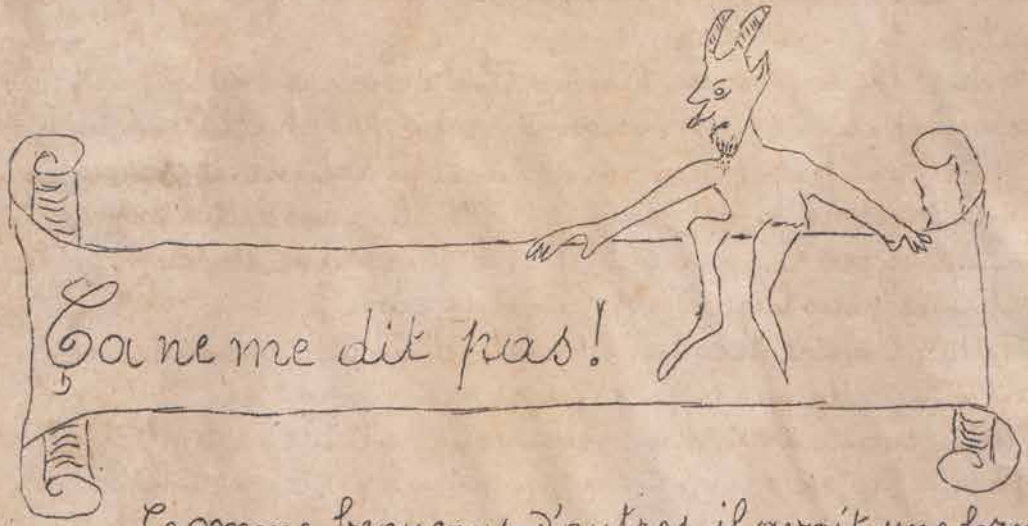 Ça ne me dit pas!
Comme beaucoup d'autres, il avait un